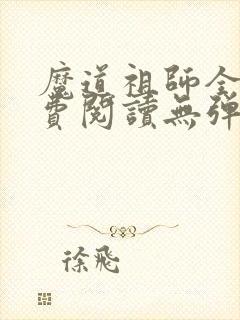 魔道祖師全
費閱讀無彈
徐飛